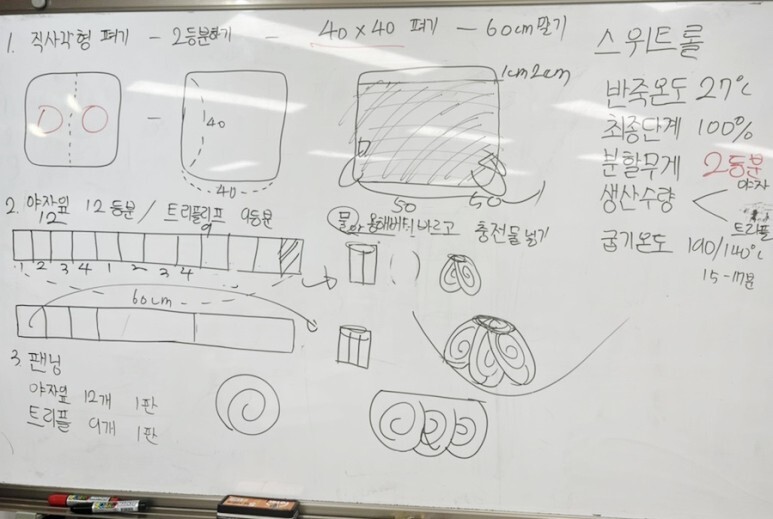 1. 직사각형 펴기 - 2등분하기 - 40×40 펴기 - 60cm 말기
1cm 2cm
40
40
50 50
2. 야자잎 12등분 / 트리플리프 9등분
12 9
물 용해버터 바르고 충전물 넣기
1 2 3 4 1 2 3 4
60cm
3. 팬닝
야자잎 12개 1판
트리플 9개 1판
스위트롤
반죽온도 27℃
최종단계 100%
분할무게 2등분
생산수량 야자
트리플
굽기온도 190/140℃
15-17분